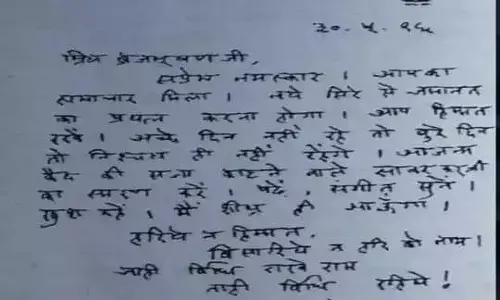 ३०. ५. १९६५
प्रिय ब्रजभूषण जी,
सप्रेम नमस्कार । आपका
समाचार मिला । नये सिरे से जमानत
का प्रयत्न करना होगा । आप हिम्मत
रखें । अच्छे दिन नहीं रहे तो बुरे दिन
तो निश्चय ही नहीं रहेंगे । आजन्म
कैद की सजा काटने वाले सावरकरजी
का स्मरण करें । पढ़ें, संगीत सुनें ।
खुश रहें । मैं शीघ्र ही आऊँगा ।
हारिये न हिम्मत,
बिसारिये न हरि को नाम ।
जाही विधि राखे राम
ताही विधि रहिये !